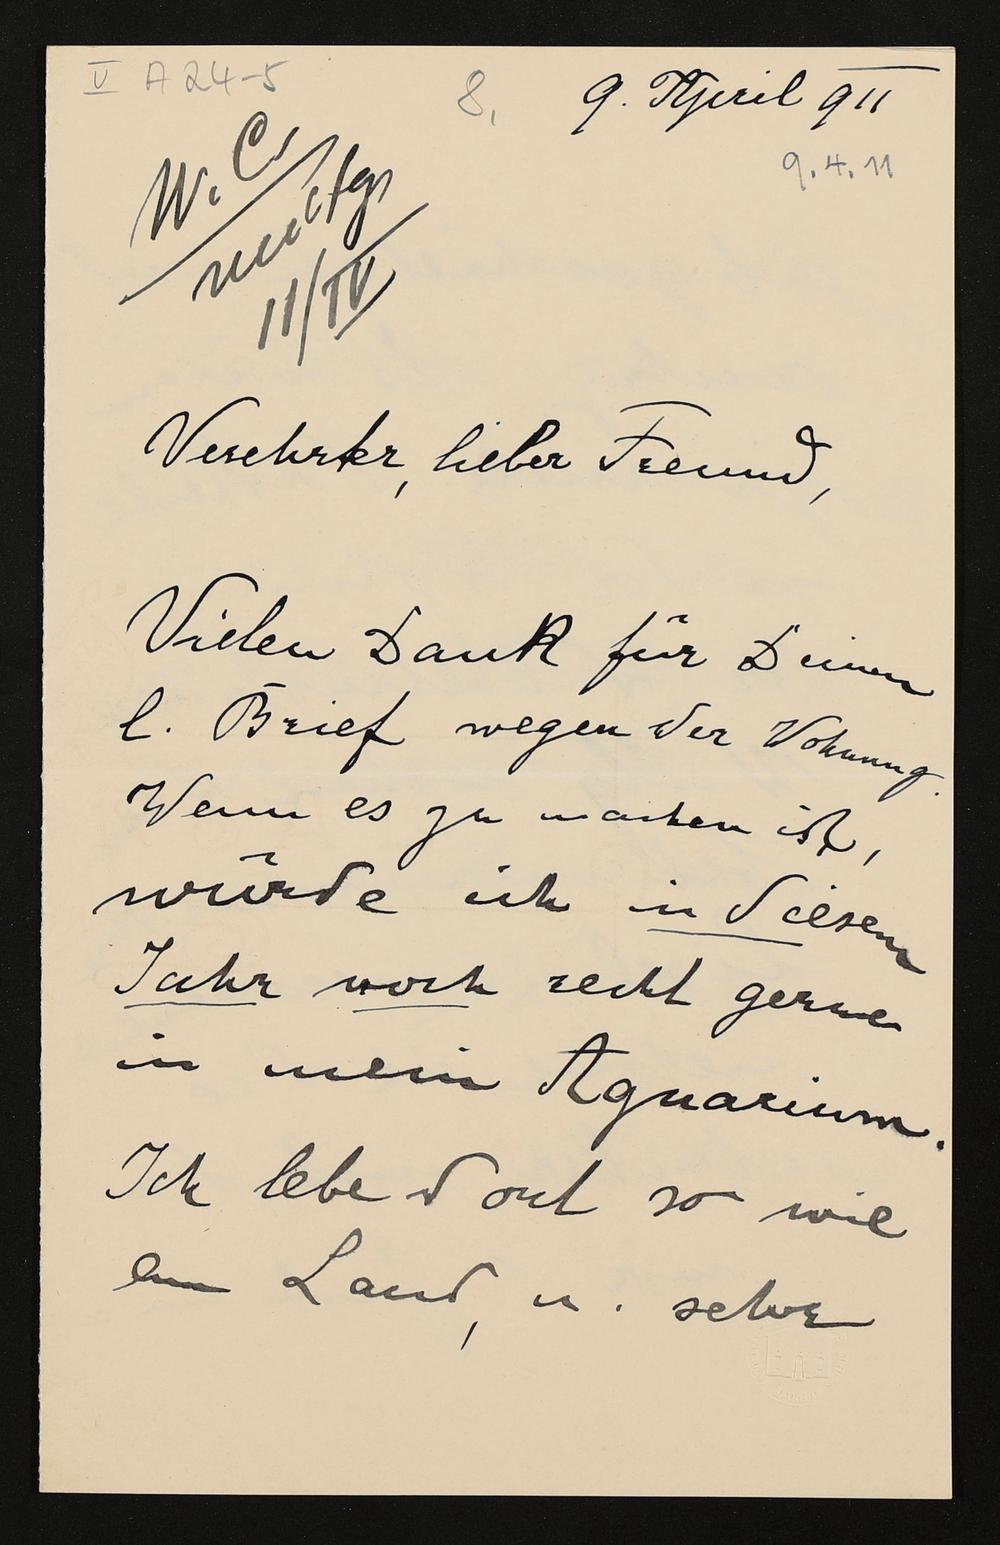 V A 24-5
8.
9. April 911
9.4.11
W. C.
11/IV
Verehrter, lieber Freund,
Vielen Dank für Deinen
l. Brief wegen der Wohnung.
Wenn es zu machen ist,
würde ich in diesem
Jahr noch recht gerne
in mein Aquarium.
Ich lebe dort so wie
am Land, u. sehr